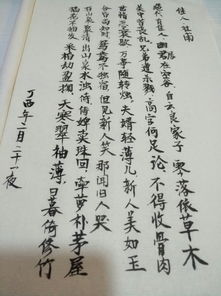 佳人 杜甫
绝代有佳人 幽居在空谷 自云良家子 零落依草木
昔丧乱 兄弟遭杀戮 高官何足论 不得收骨肉
世情恶衰歇 万事随转烛 夫婿轻薄儿 新人美如玉
合昏尚知时 鸳鸯不独宿 但见新人笑 那闻旧人哭
在山泉水清 出山泉水浊 侍婢卖珠回 牵萝补茅屋
摘花不插发 采柏动盈掬 天寒翠袖薄 日暮倚修竹
丁酉年二月二十一夜